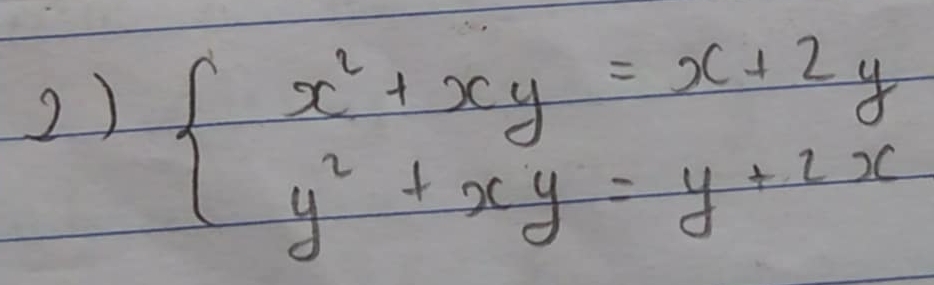 2) { x² + xy = x + 2y
y² + xy = y + 2x